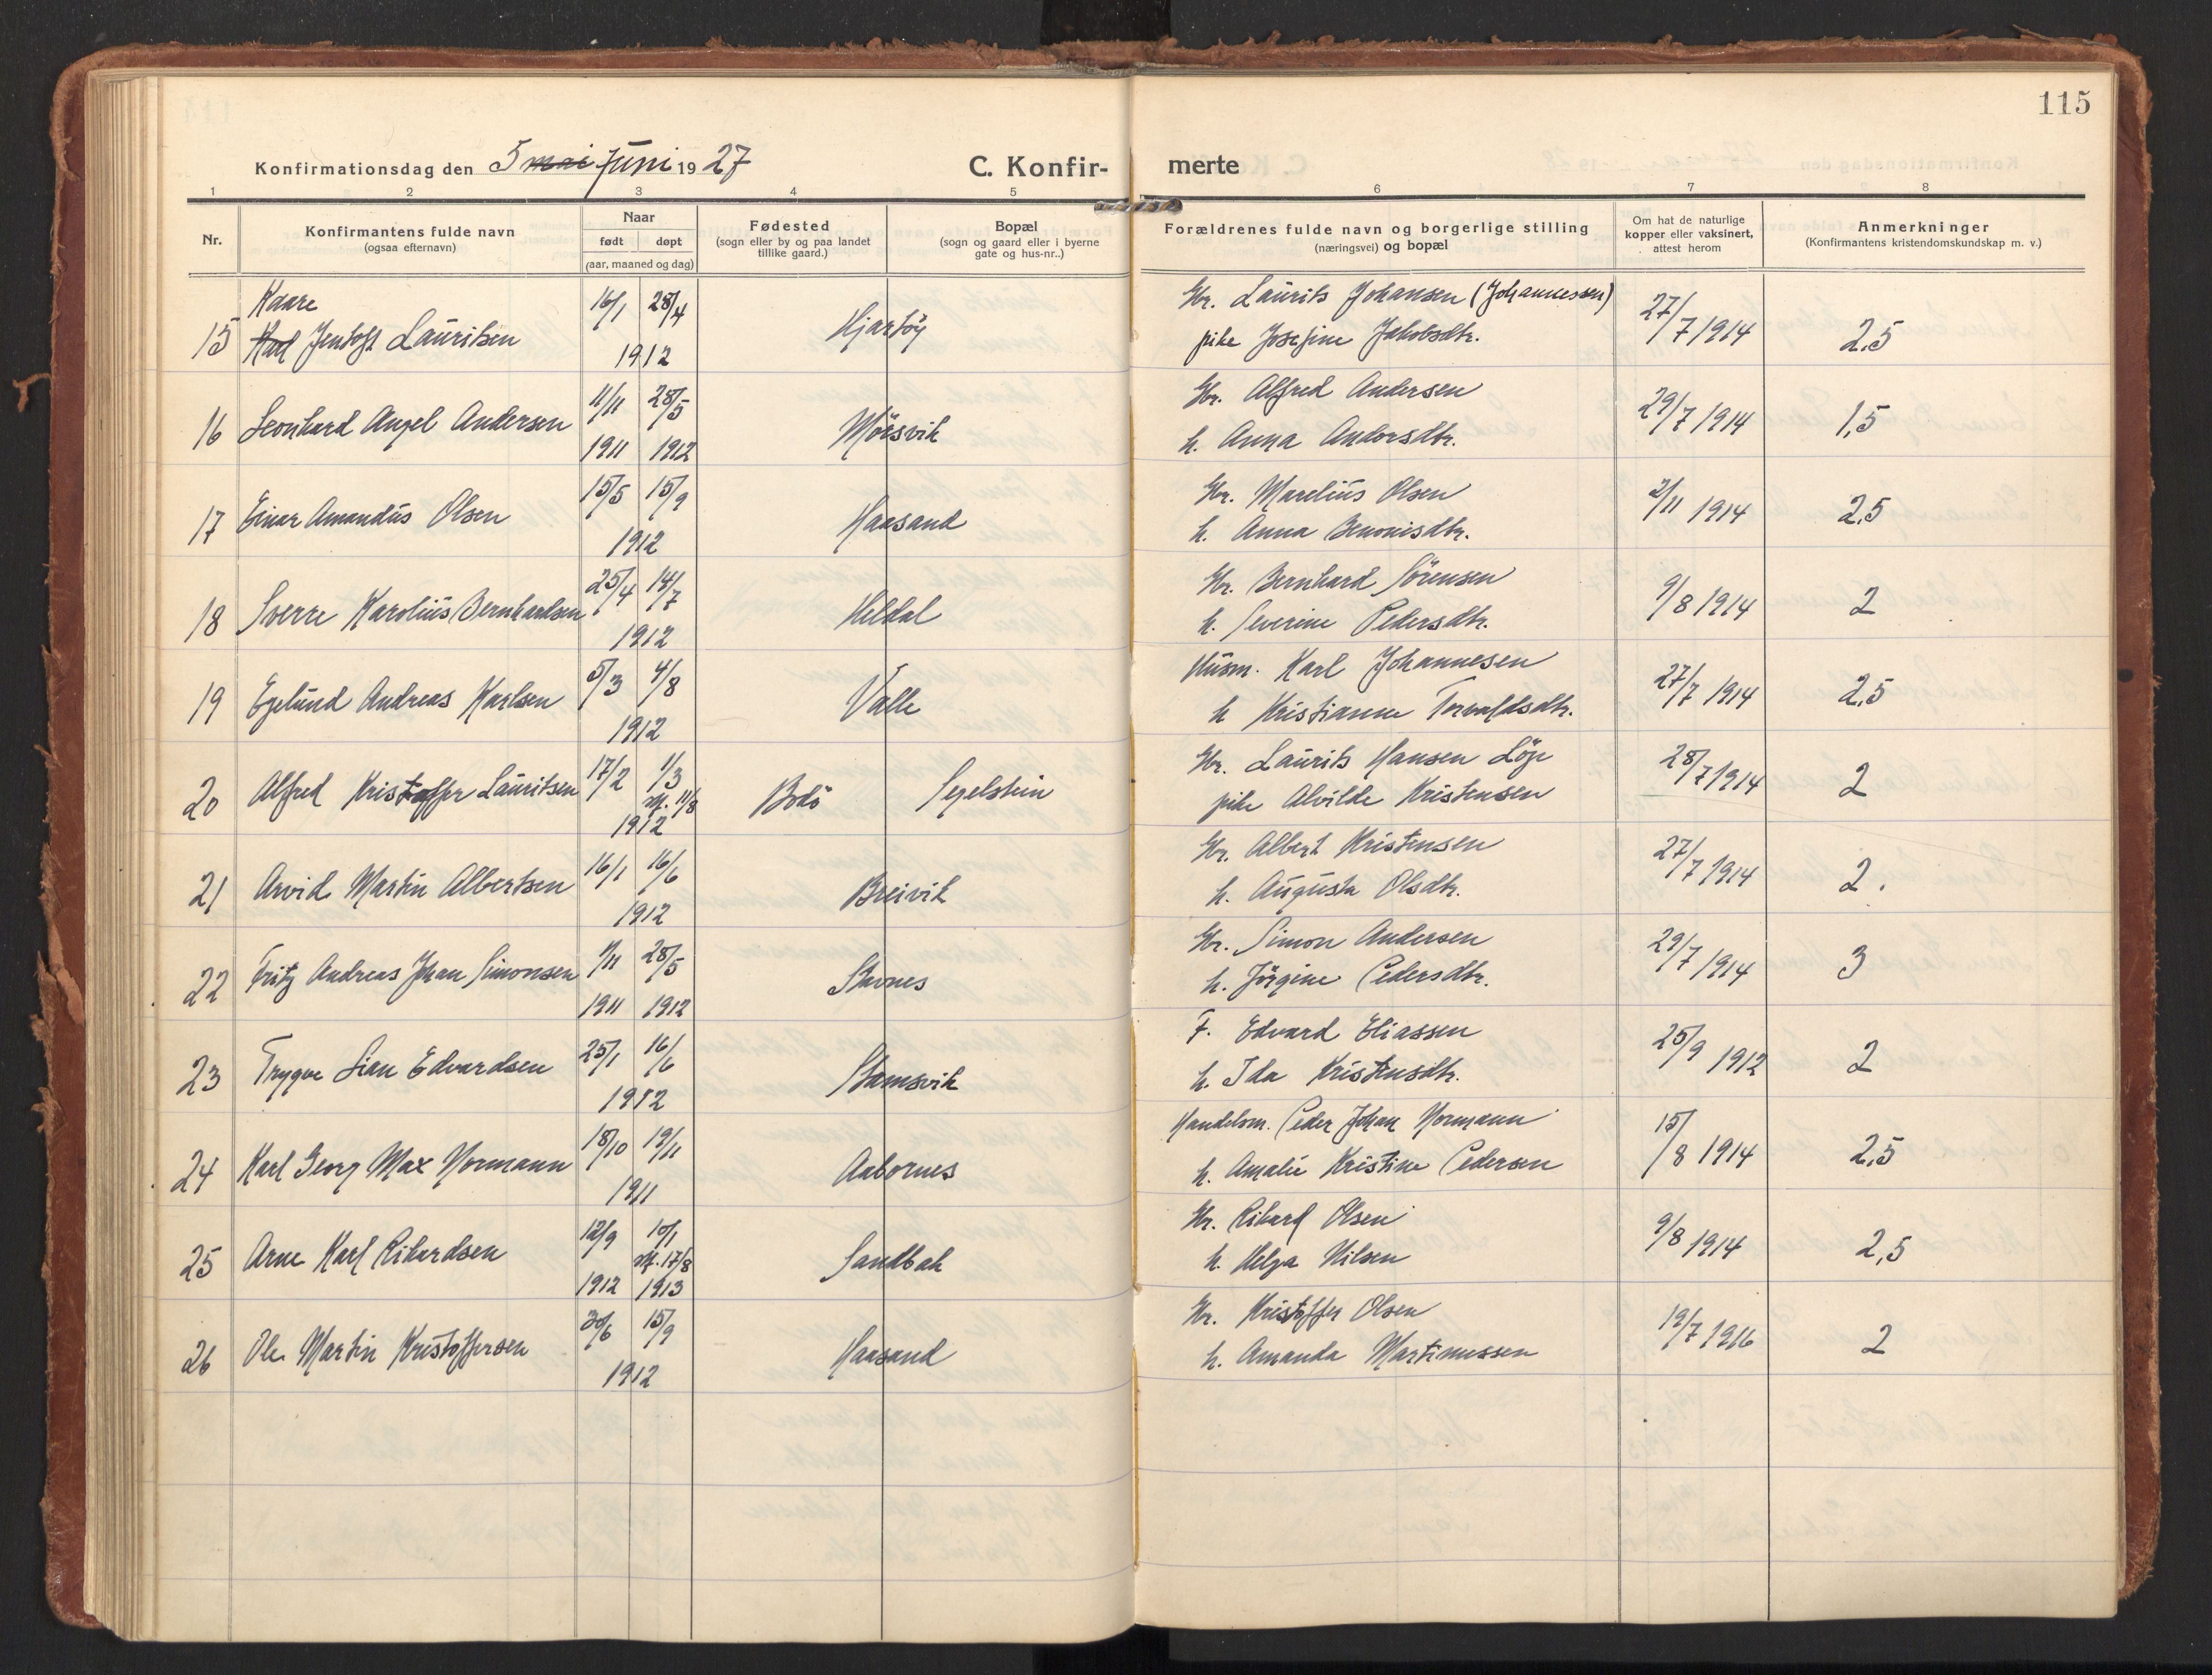 115
Konfirmationsdag den 5 mai juni 1927 C. Konfirmerte
1 2 3 4 5 6 7 8
Nr.
Konfirmantens fulde navn
(ogsaa efternavn)
Naar
født døpt
(aar, maaned og dag)
Fødested
(sogn eller by og paa landet
tillike gaard.)
Bopæl
(sogn og gaard eller i byerne
gate og hus-nr..)
Forældrenes fulde navn og borgerlige stilling
(næringsvei) og bopæl
Om hat de naturlige
kopper eller vaksinert,
attest herom
Anmerkninger
(Konfirmantens kristendomskundskap m. v.)
Kaare
15 Karl Jentoft Lauritsen 16/1 28/4 1912 Hjartøy Gbr. Laurits Johansen (Johannessen)
pike Josefine Jakobsdtr. 27/7 1914 2,5
16 Leonhard Angel Andersen 11/11 1911 28/5 1912 Mørsvik Gbr. Alfred Andersen
h. Anna Andorsdtr. 29/7 1914 1,5
17 Einar Amandus Olsen 15/5 15/9 1912 Haasand Gbr. Marelius Olsen
h. Anna Benonisdtr. 2/11 1914 2,5
18 Sverre Karolius Bernhardsen 25/4 14/7 1912 Heldal Gbr. Bernhard Sørensen
h. Severine Pedersdtr. 9/8 1914 2
19 Egelund Andreas Karlsen 5/3 4/8 1912 Valle Husm. Karl Johannesen
h Kristianne Torvaldsdtr. 27/7 1914 2,5
20 Alfred Kristoffer Lauritsen 17/2 1/3 st. 11/8 1912 Bodø Segelstein Gbr. Laurits Hansen Løp
pike Alvilde Kristensen 28/7 1914 2
21 Arvid Martin Albertsen 16/1 16/6 1912 Breivik Gbr. Albert Kristensen
h. Augusta Olsdtr. 27/7 1914 2.
22 Fritz Andreas Johan Simonsen 1/11 1911 28/5 1912 Stavnes Gbr. Simon Andersen
h. Jørgine Pedersdtr. 29/7 1914 3
23 Trygve Lian Edvardsen 25/1 16/6 1912 Stamsvik F. Edvard Eliassen
h. Ida Kristensdtr. 25/9 1912 2
24 Karl Georg Max Normann 18/10 19/11 1911 Aabornes Handelsm. Peder Johan Normann
h. Amalie Kristine Pedersen 15/8 1914 2,5
25 Arne Karl Rikardsen 12/9 1912 10/1 st. 17/8 1913 Sandbak Gbr. Rikard Olsen
h. Helga Nilsen 9/8 1914 2,5
26 Ole Martin Kristoffersen 30/6 15/9 1912 Haasand Gbr. Kristoffer Olsen
h. Amanda Martinussen 19/7 1916 2